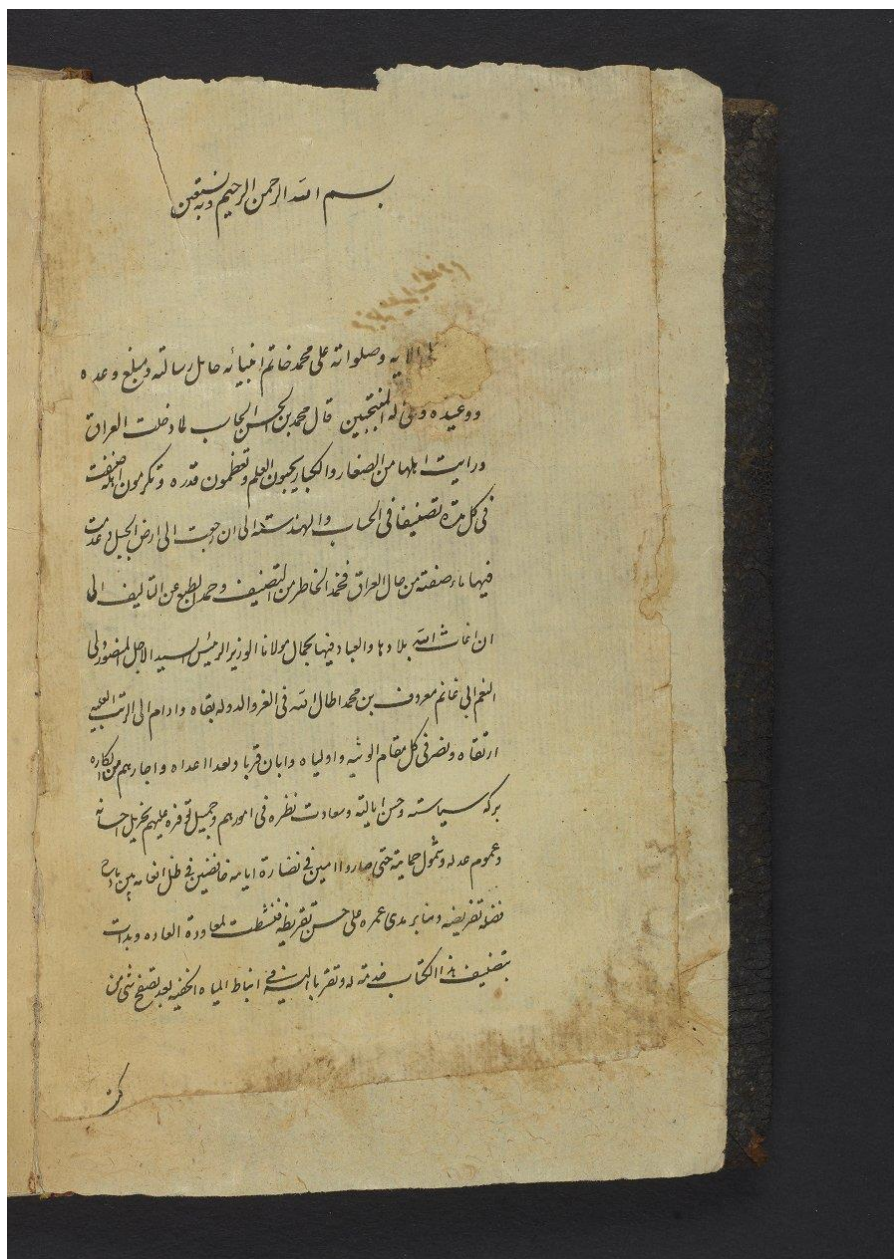 بسم الله الرحمن الرحيم وبه نستعين
الايه وصلواته على محمد خاتم انبيائه حامل رسالته ومبلغ وعده
ووعيده وعلى اله المنتجبين قال محمد بن الحسن الحاسب لما دخلت العراق
ورايت اهلها من الصغار والكبار يحبون العلم وتعظمون قدره وتكرمون اهله صنفت
فى كل مدة تصنيفا فى الحساب والهندسة الى ان رجعت الى ارض الجبل وعدمت
فيها ما وصفته من حال العراق فخمد الخاطر من التصنيف وجمد الطبع عن التاليف الى
ان اغاث الله بلادها والعباد فيها بجمال مولانا الوزير الرئيس السيد الاجل المنصور ولى
النعم ابى غانم معروف بن محمد اطال الله فى العز والدوله بقاه وادام الى الرتب العليه
ارتقاه ونصر فى كل مقام الويته واولياه وابان قربا وبعدا اعداه واجارهم من المكاره
بركة سياسته وحسن ايالته وسعادت نظره فى امورهم وجميل توفره عليهم بجزيل احسانه
وعموم عدله وشمول حمايته حتى صاروا امنين فى نضارة ايامه خافضين فى ظل انعامه بين
فضله تفريضه ومثابر مدى عمره على حسن تقريظه فنشطت لمعاودة العاده وبدات
بتصنيف هذا الكتاب خدمة له وتقربا اليه فى انباط المياه الخفيه بعد تصفح شى من